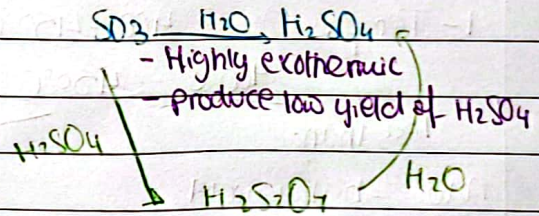 SO3 H2O H2SO4
- Highly exothermic
- produce low yield of H2SO4
H2SO4
H2O
H2S2O7